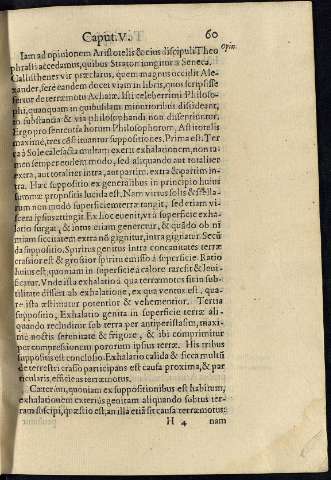 Caput. V. 60
Iam ad opinionem Aristotelis & eius discipuli Theo
phrasti accedamus, quibus Straton iungitur a Seneca.
Callisthenes vir præclarus, quem magnus occidit Ale-
xander, fere eandem docet viam in libris, quos scripsisse
fertur de terræmotu Achaiæ. Isti celeberrimi Philoso-
phi, quanquam in quibusdam minutioribus dissideant,
in substantia & via philosophandi non dissentiuntur.
Ergo pro sententia horum Philosophorum, Aristotelis
maxime, tres constituuntur suppositiones. Prima est. Ter
ra à Sole calefacta multam exerit exhalationem, non ta-
men semper eodem modo, sed aliquando aut totaliter
extra, aut totaliter intra, aut partim extra & partim in-
tra. Hæc suppositio ex generalibus in principio huius
summæ propositis lucida est. Nam virtus solis & stella-
rum non modò superficiem terræ tangit, sed etiam vi-
scera ipsius attingit. Ex hoc euenit, vt à superficie exha-
latio surgat, & intus etiam generetur, & quādo ob ni
miam siccitatem extra nō gignitur, intra gigniatur. Secū
da suppositio. Spiritus genitus intra concauitates terræ
crassior est & grossior spiritu emisso à superficie. Ratio
huius est; quoniam in superficie à calore rarescit & leuifi-
ficatur. Vnde ista exhalatio, qua terræmotus fit in sub-
tilitate differt ab exhalatione, ex qua ventus est, qua-
re ista æstimatur potentior & vehementior. Tertia
suppositio, Exhalatio genita in superficie terræ ali-
quando recluditur sub terra per antiperistasim, maxi-
mè noctis serenitate & frigore, & ibi comprimitur
per compressionem pororum ipsius terræ. His tribus
suppositis est conclusio. Exhalatio calida & sicca multū
de terrestri crasso participans est causa proxima, & par
ticularis, efficiens terræmotus.
Cæterùm, quoniam ex suppositionibus est habitum,
exhalationem exteriùs genitam aliquando subtus ter-
ram suscipi, quæstio est, an illa etiā sit causa terræmotus:
H 4 nam